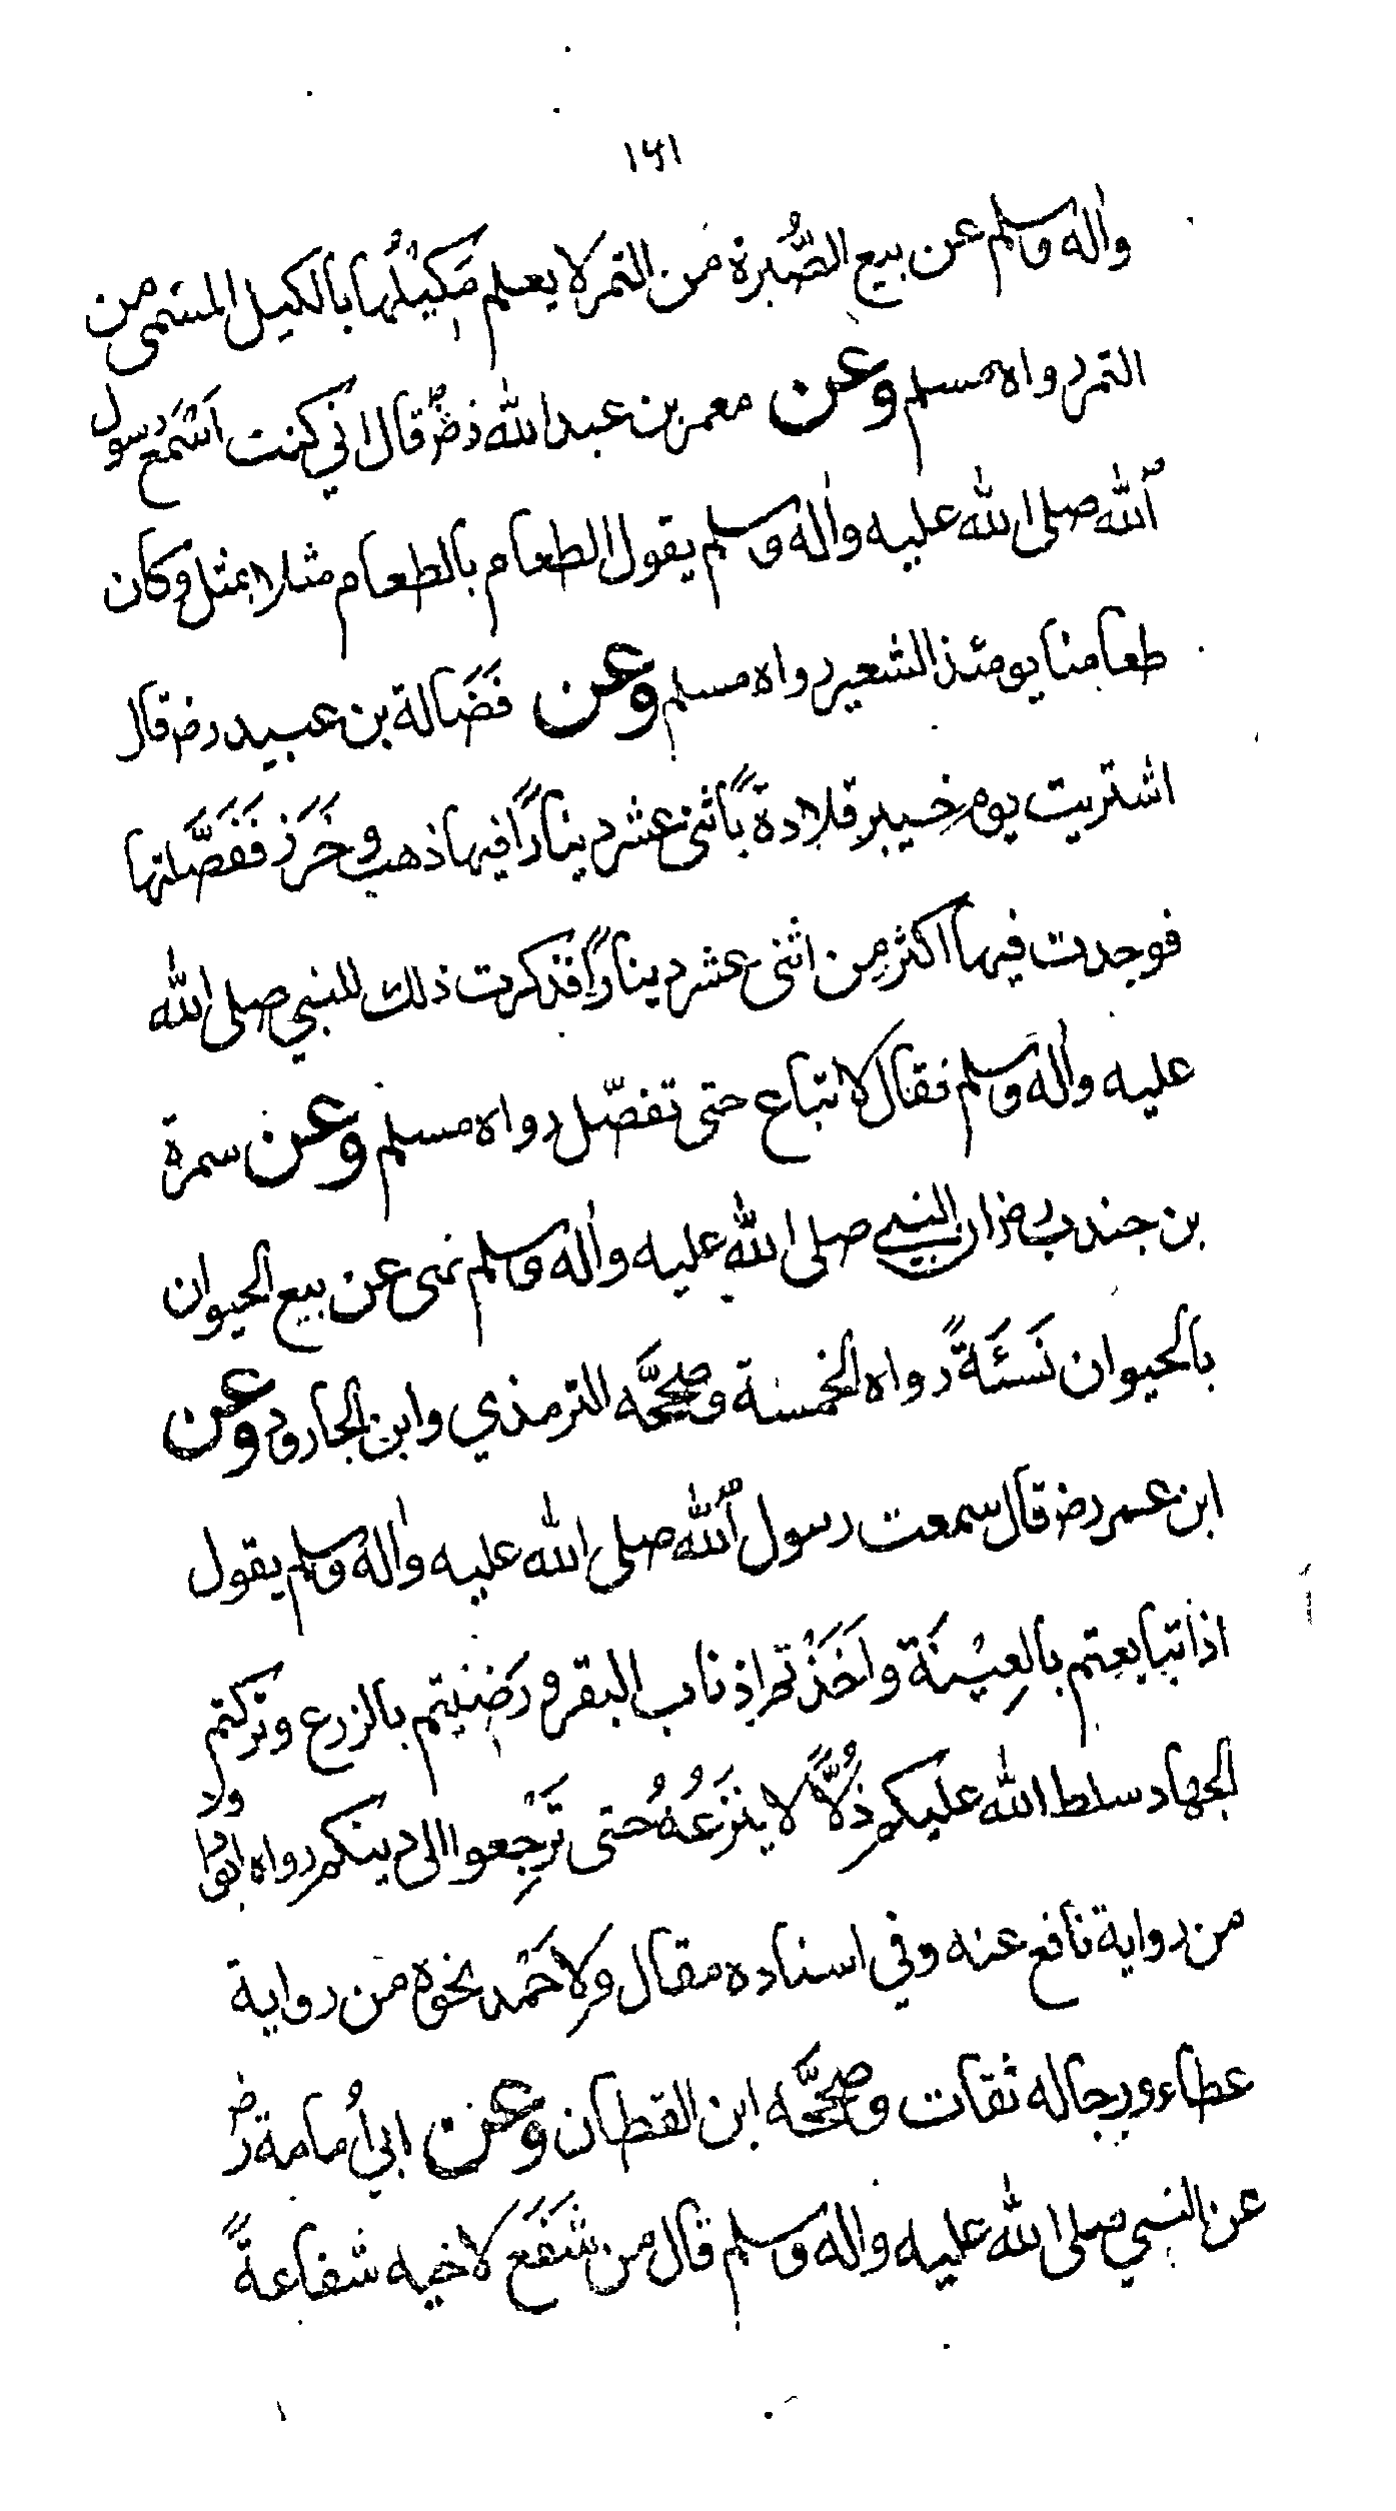 ١٦١
واٰله وسلم عن بيع الصُّبرة من التمر لا يعلم مَكِيْلُها بالكيل المسمى من
التمر رواه مسلم وعن معمر بن عبد الله رضؓ قال اني كنت اسمَع رسول
اللّٰه صلى الله عليه واٰله وسلم يقول الطعام بالطعام مثلا بمثل وكان
طعامنا يومئذ الشعير رواه مسلم وعن فَضَالة بن عبيد رض قال
اشتريت يوم خيبر قلادةً باثنى عشر دينارًا فيها ذهب وخَرَز فَفَصَّلتها
فوجدت فيها اكثر مِن اثنى عشر دينارًا فذكرت ذلك للنبي صلى الله
عليه واٰله وسلم فقال لا تباع حتى تفصّل رواه مسلم وعن سمرة
بن جندب رض ان النبي صلى الله عليه واٰله وسلم نهى عن بيع الحيوان
بالحيوان نَسِئَةً رواه الخمسة وصحَّحه الترمذي وابن الجارود وعن
ابن عمر رض قال سمعت رسول اللّٰه صلى الله عليه واٰله وسلم يقول
اذا تبايعتم بالعِيْنَة واَخَذْتم اذناب البقر ورَضيتم بالزرع وتركتم
الجهاد سلط الله عليكم ذُلّاً لا ينزَعُهُ حتى تَرْجِعوا الى دينكم رواه ابو داود
من رواية نافع عنه وفي اسناده مقال ولاحمَد نحوه من رواية
عطاء ورجاله ثقات وصحَّحه ابن القطان وعن ابي اُمامة رض
عن النبي صلى الله عليه واٰله وسلم قال من شَفَعَ لاخيه شفاعةً